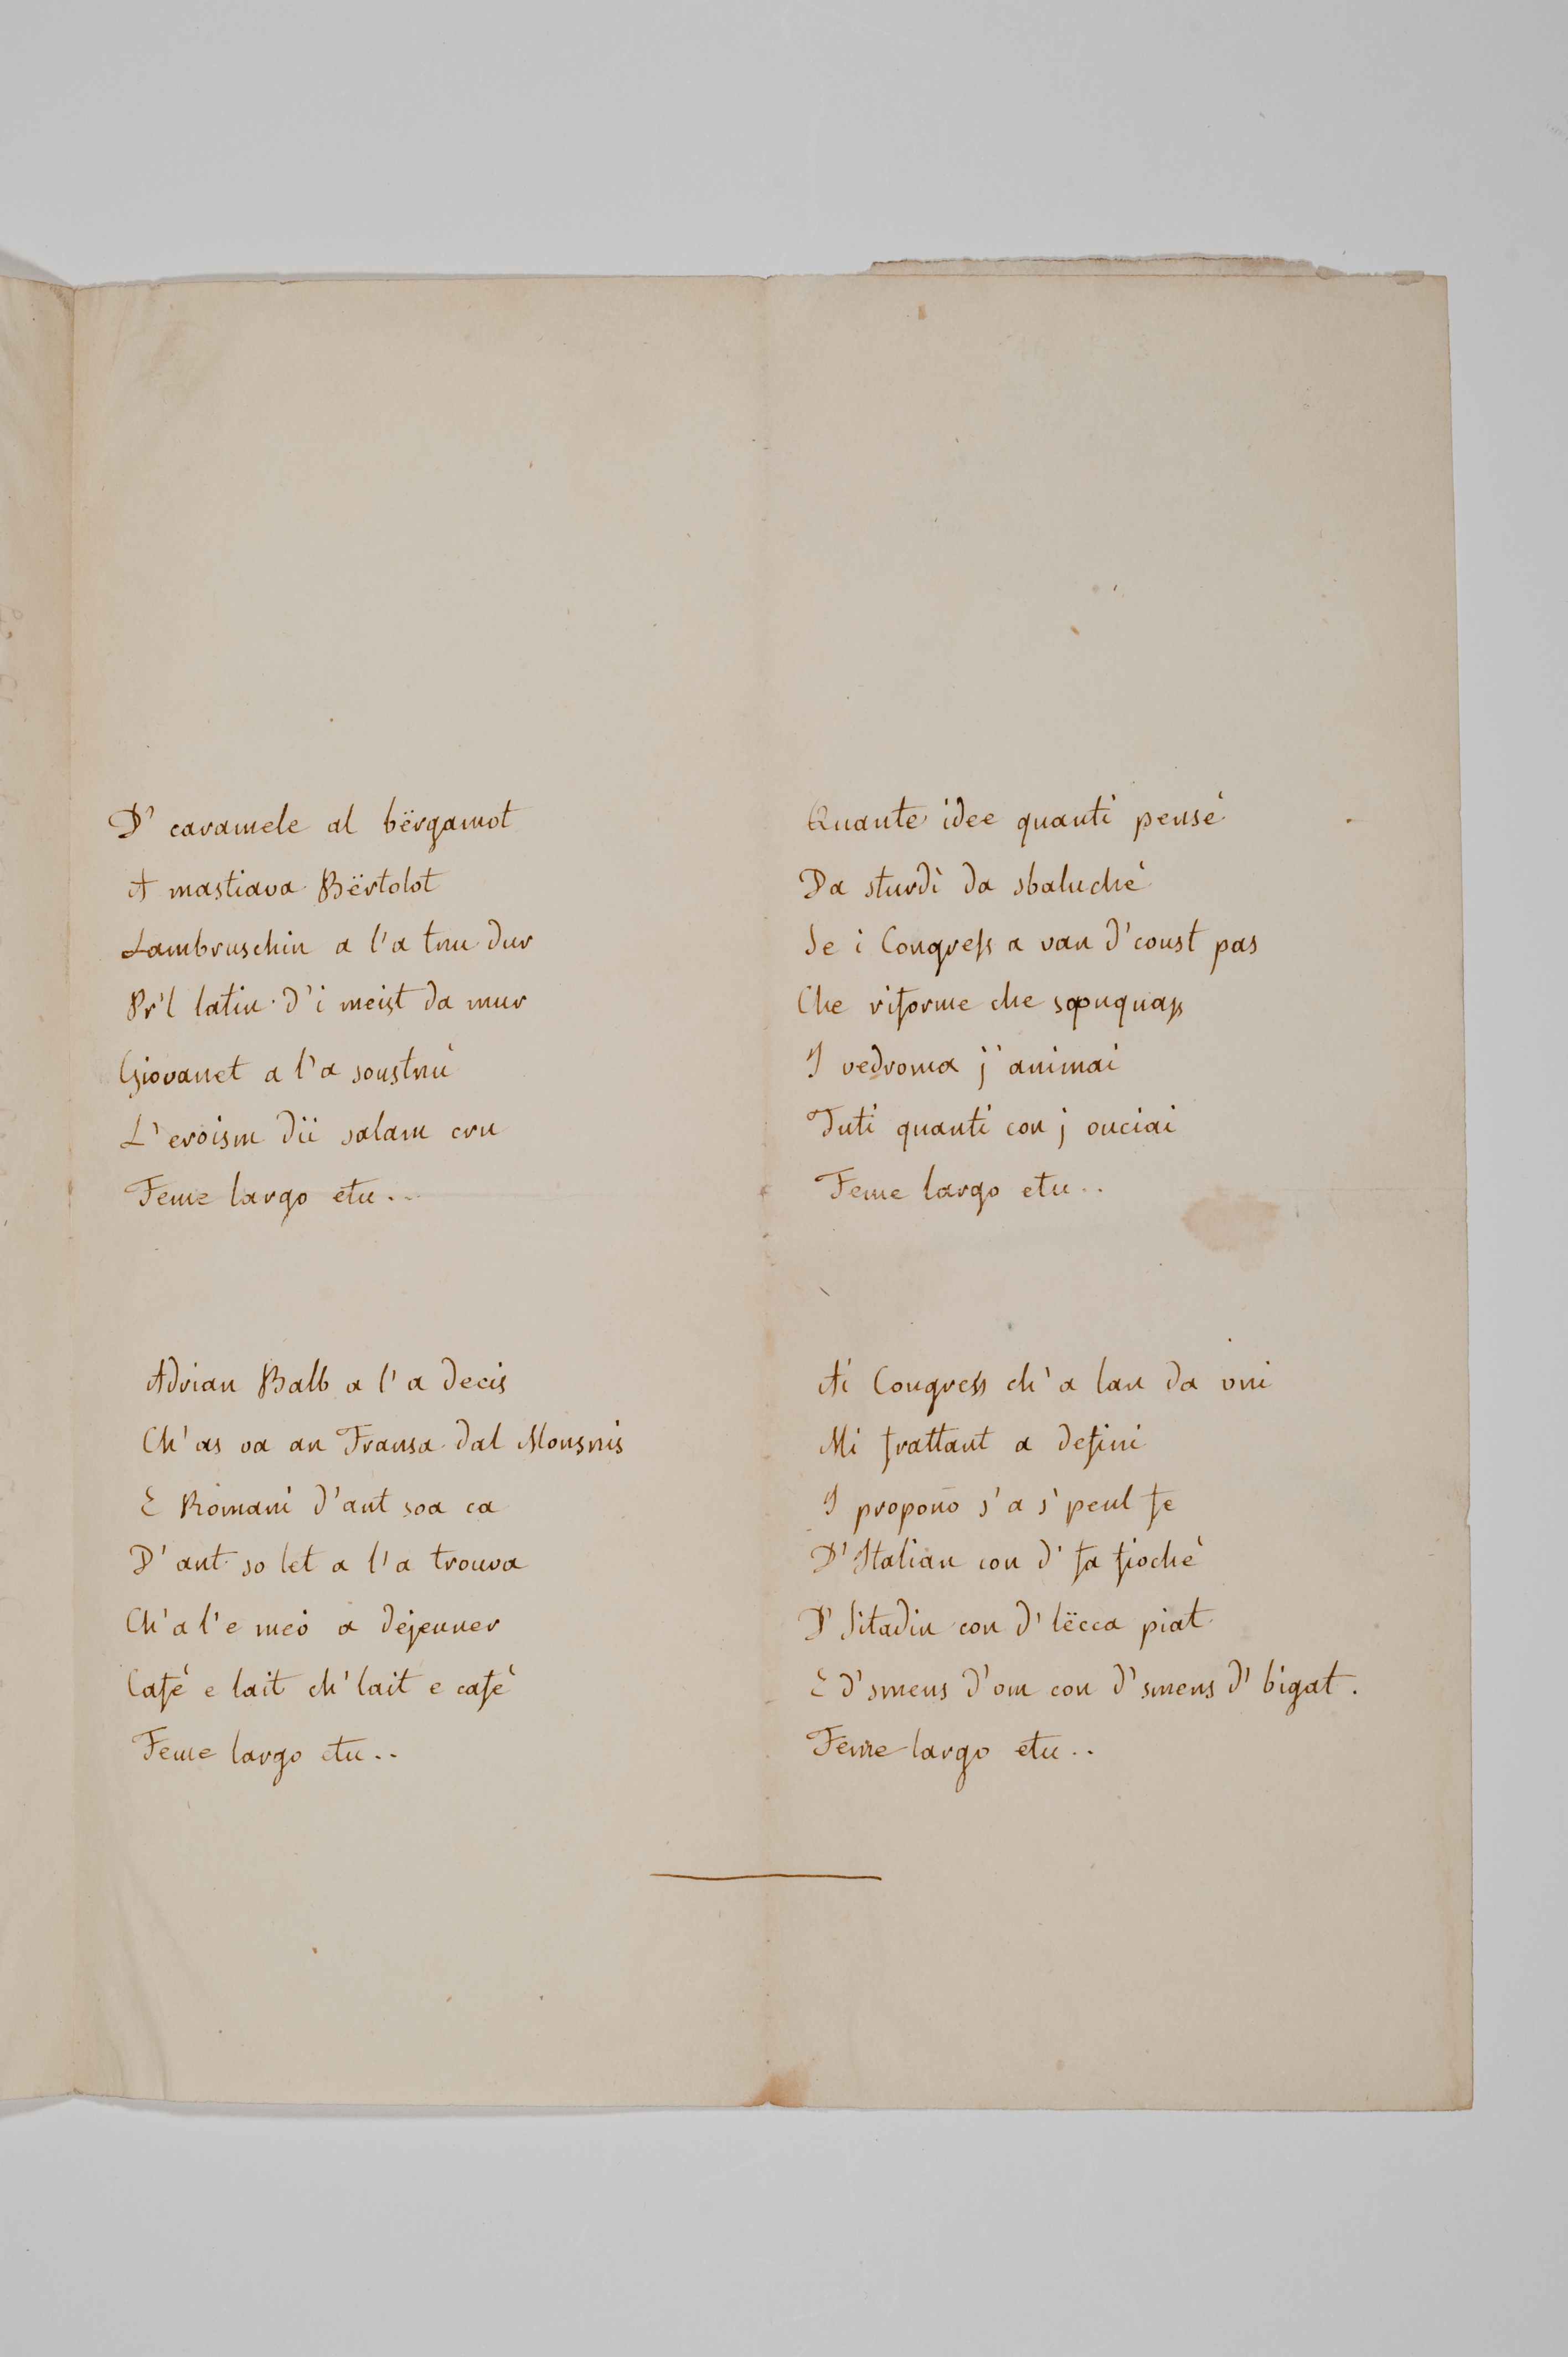 D' caramele al bërgamot
A mastiava Bërtolot
Lambruschin a l'a tnu dur
Pr'l latin d'i meist da mur
Giovanet a l'a soustnù
L'eroism dii salam cru
Feme largo etu..
Adrian Balb a l'a decis
Ch'as va an Fransa dal Monsnis
E Romani d'ant soa ca
D'ant so let a l'a trouva
Ch'a l'e mei a dejeuner
Cafè e lait ch'lait e cafè
Feme largo etu..
Quante idee quanti pensè
Da sturdì da sbaluchè
Se i Congress a van d'coust pas
Che riforme che
I vedroma j'animai
Tuti quanti con j ouciai
Feme largo etu..
Ai Congress ch'a l'an da vni
Mi frattant a defini
I propono s'a s'peul fe
D'Italian con d'fa fiochè
D'Sitadin con d'lëcca piat
E d'smens d'om con d'smens d'bigat.
Feme largo etu..